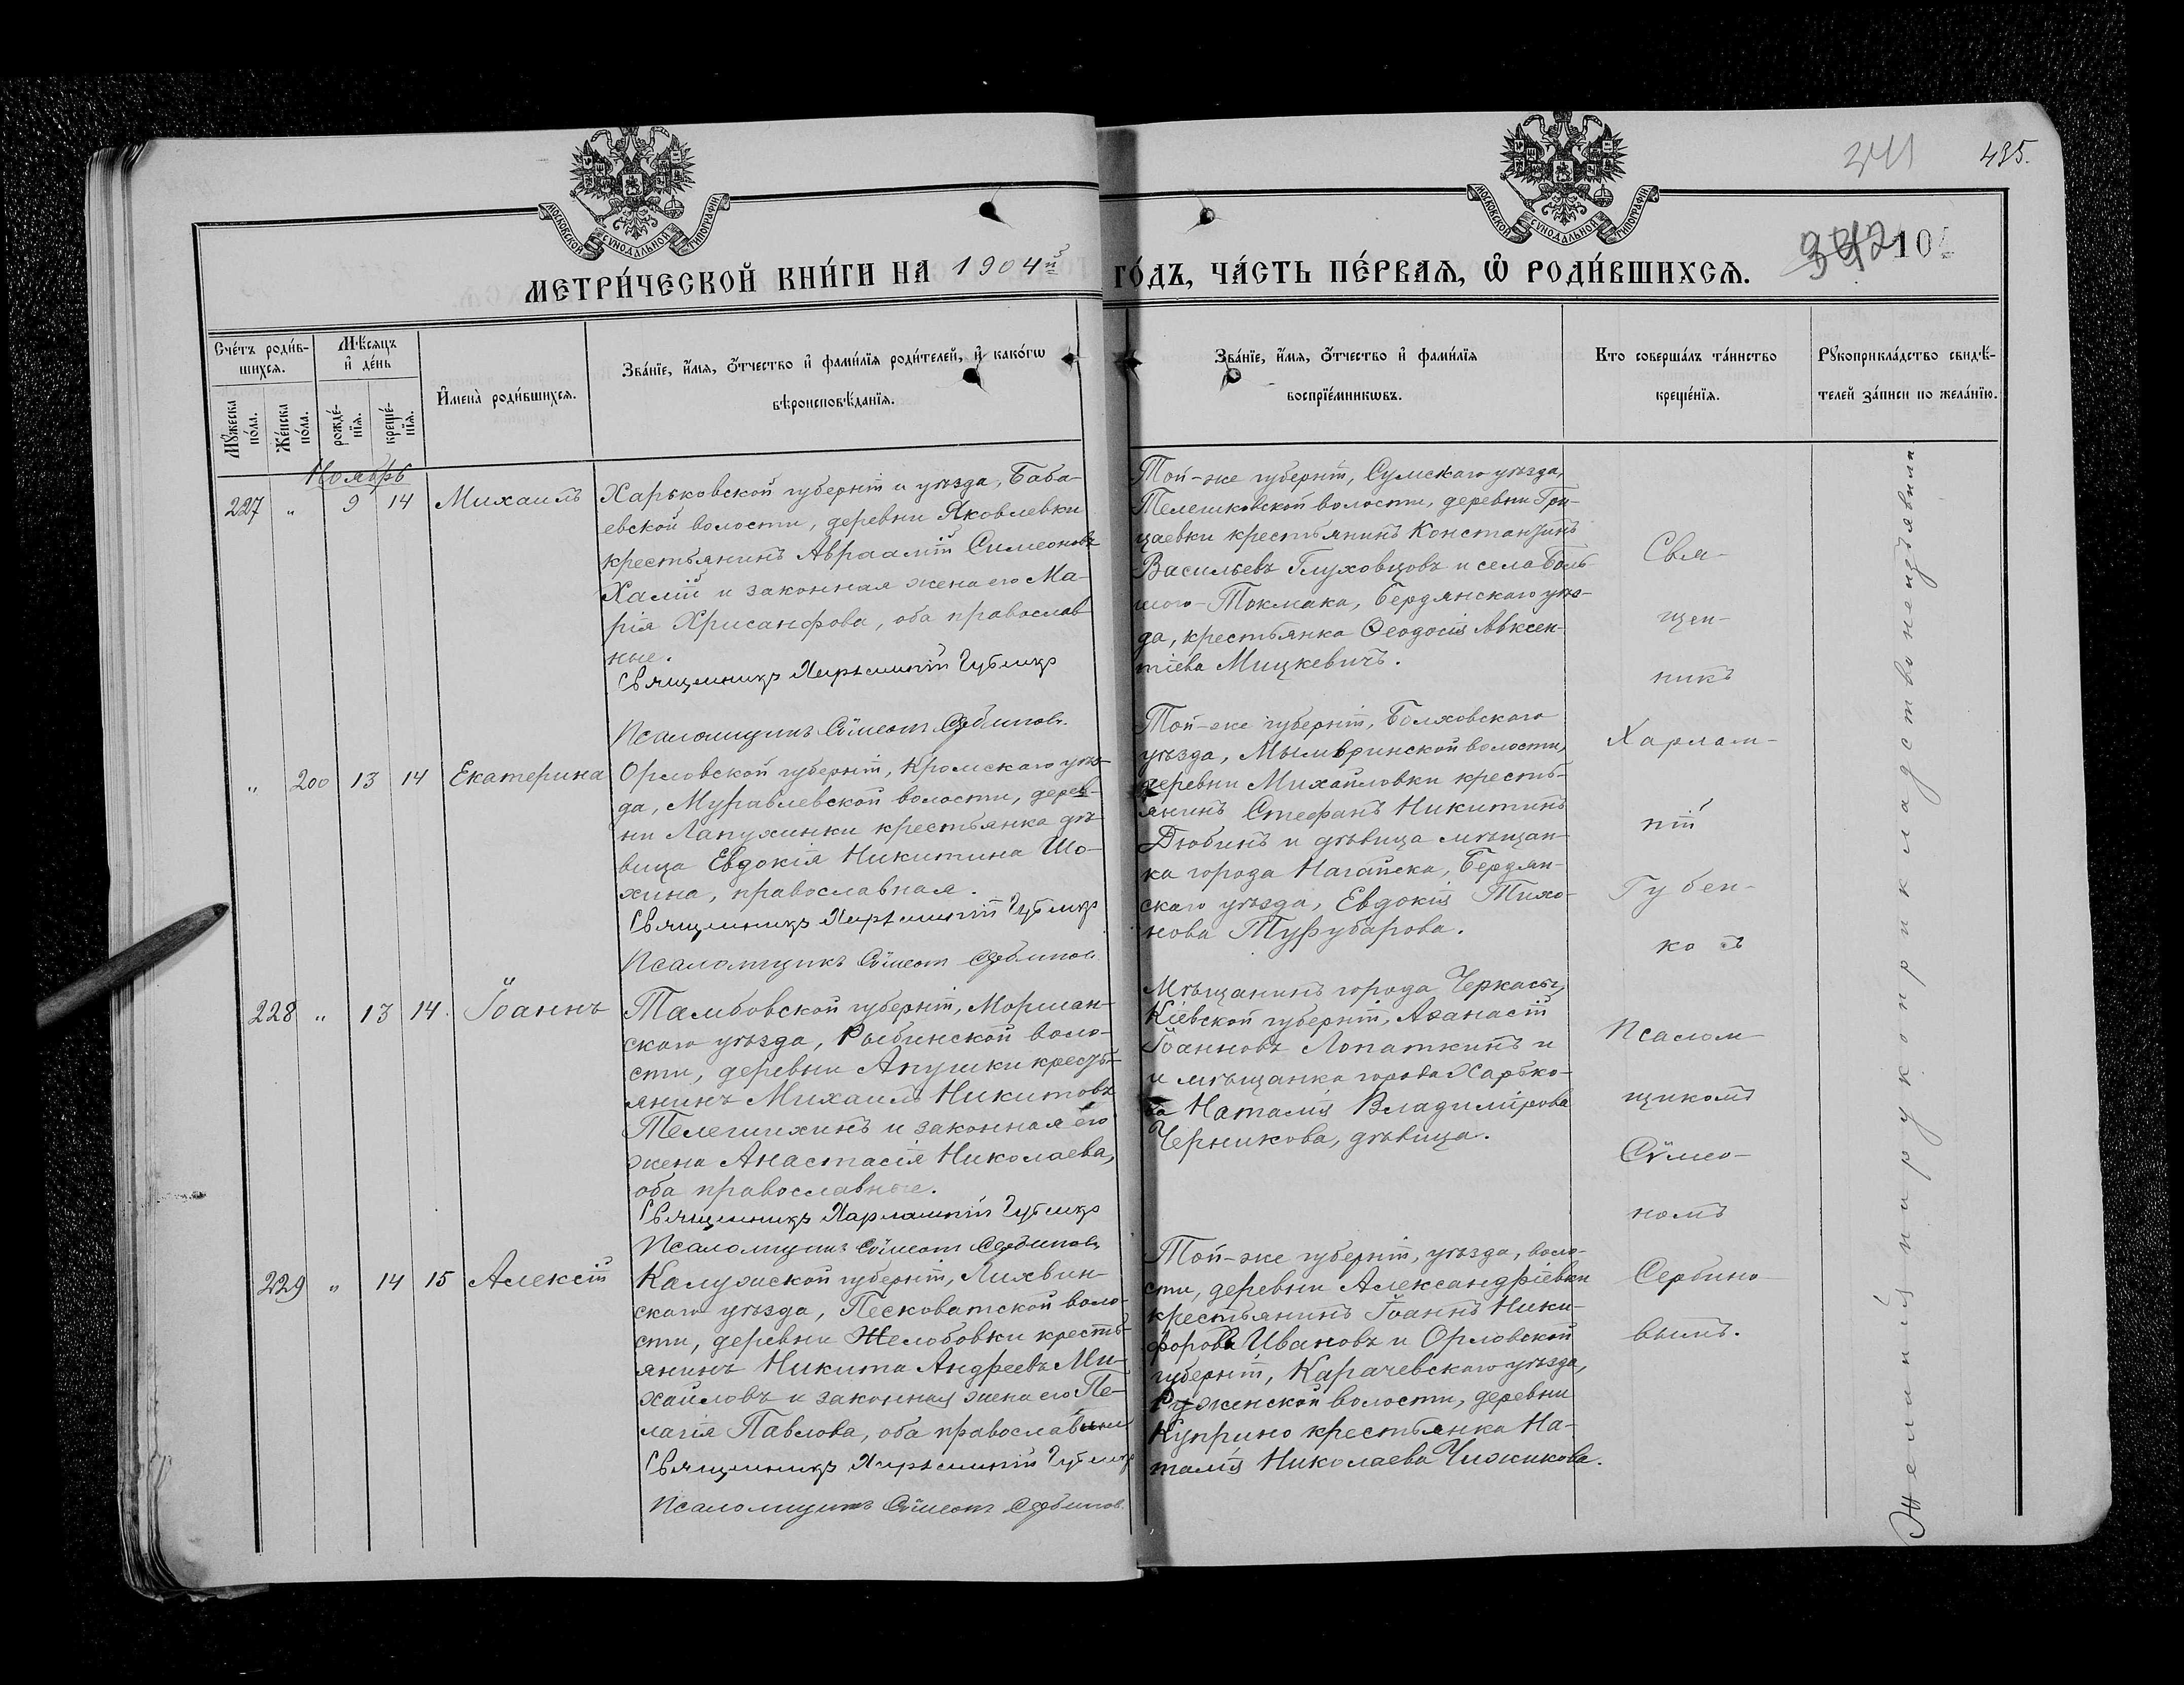 341 435.
МОСКОВСКОЙ СѴНОДАЛЬНОЙ ТИПОГРАФІИ
МОСКОВСКОЙ СѴНОДАЛЬНОЙ ТИПОГРАФІИ
МЕТРИ́ЧЕСКОЙ КНИ́ГИ НА 1904й ГО́ДЪ, ЧА́СТЬ ПЕ́РВАЯ, Ѡ РОДИ́ВШИХСЯ.
342 10
Сче́тъ роди́в-
шихся.
Мꙋ́жеска по́ла.
Же́нска по́ла.
Мѣ́сяцъ
и҆ де́нь
рожде́-
нїя.
креще́-
нїя.
И҆мена̀ роди́вшихся.
Зва́нїе, и҆́мя, ѻ҆́тчество и҆ фами́лїя роди́телей, и҆ како́гѡ
вѣроисповѣ́данїя.
Зва́нїе, и҆́мя, ѻ҆́тчество и҆ фами́лїя
воспрїе́мникѡвъ.
Кто соверша́лъ та́инство
креще́нїя.
Рꙋкоприкла́дство свидѣ́-
телей за́писи по жела́нїю.
Ноябрь
227 " 9 14 Михаилъ
Харьковской губерніи и уѣзда, Баба-
евской волости, деревни Яковлевки
крестьянинъ Авраамій Симеоновъ
Халій и законная жена его Ма-
рія Хрисанфова, оба православ
ные.
Священникъ Харлампій Губенко
Псаломщикъ Сѵмеонъ Сербиновъ
Той-же губерніи, Сумскаго уѣзда,
Телешковской волости, деревни Гри-
цаевки крестьянинъ Константинъ
Васильевъ Глуховцовъ и села Боль-
шого-Токмака, Бердянскаго уѣз-
да, крестьянка Ѳеодосія Авксен-
тіева Мицкевичъ.
" 200 13 14 Екатерина
Орловской губерніи, Кромскаго уѣз-
да, Муравлевской волости, дерев-
ни Лапухинки крестьянка дѣ
вица Евдокія Никитина Шо-
хина, православная.
Священникъ Харлампій Губенко
Псаломщикъ Сѵмеонъ Сербиновъ
Той-же губерніи, Болховского
уѣзда, Мымвринской волости,
деревни Михайловки кресть-
янинъ Стефанъ Никитинъ
Дюбинъ и дѣвица мѣщан-
ка города Нагайска, Бердян-
скаго уѣзда, Евдокія Тихо-
нова Туфубарова.
228 " 13 14 Іоаннъ
Тамбовской губерніи, Моршан-
скаго уѣзда, Рыбинской воло-
сти, деревни Апушки кресть-
янинъ Михаилъ Никитовъ
Телегинхинъ и законная его
жена Анастасія Николаева,
оба православные.
Священникъ Харлампій Губенко
Псаломщикъ Сѵмеонъ Сербиновъ
Мѣщанинъ города Черкасы,
Кіевской губерніи, Аѳанасій
Іоанновъ Лопаткинъ и
и мѣщанка города Харько-
ва Наталія Владимірова
Черникова, дѣвица.
229 " 14 15 Алексій
Калужской губерніи, Лихвин-
скаго уѣзда, Песковатской воло-
сти, деревни Желобовки кресть-
янинъ Никита Андреевъ Ми-
хайловъ и законная жена его Пе-
лагія Павлова, оба православные
Священникъ Харлампій Губенко
Псаломщикъ Сѵмеонъ Сербиновъ
Той-же губерніи, уѣзда, воло-
сти, деревни Александріевки
крестьянинъ Іоаннъ Ники-
форовъ Ивановъ и Орловской
губерніи, Карачевскаго уѣзда,
Руженской волости, деревни
Куприно крестьянка На-
талія Николаева Чижикова.
Свя-
щен-
никъ
Харлам-
пій
Губен-
ко съ
Псалом-
щикомъ
Сѵмео-
номъ
Сербино-
вымъ.
Желаній на рукоприкладство не изъявили